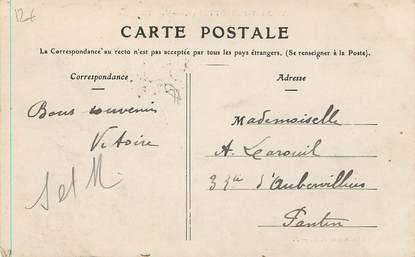 12€
CARTE POSTALE
La Correspondance au recto n'est pas acceptée par tous les pays étrangers. (Se renseigner à la Poste).
Correspondance
Adresse
Bons souvenirs
Victoire
S et M
Mademoiselle
A.
d'Aubervilliers
Pantin